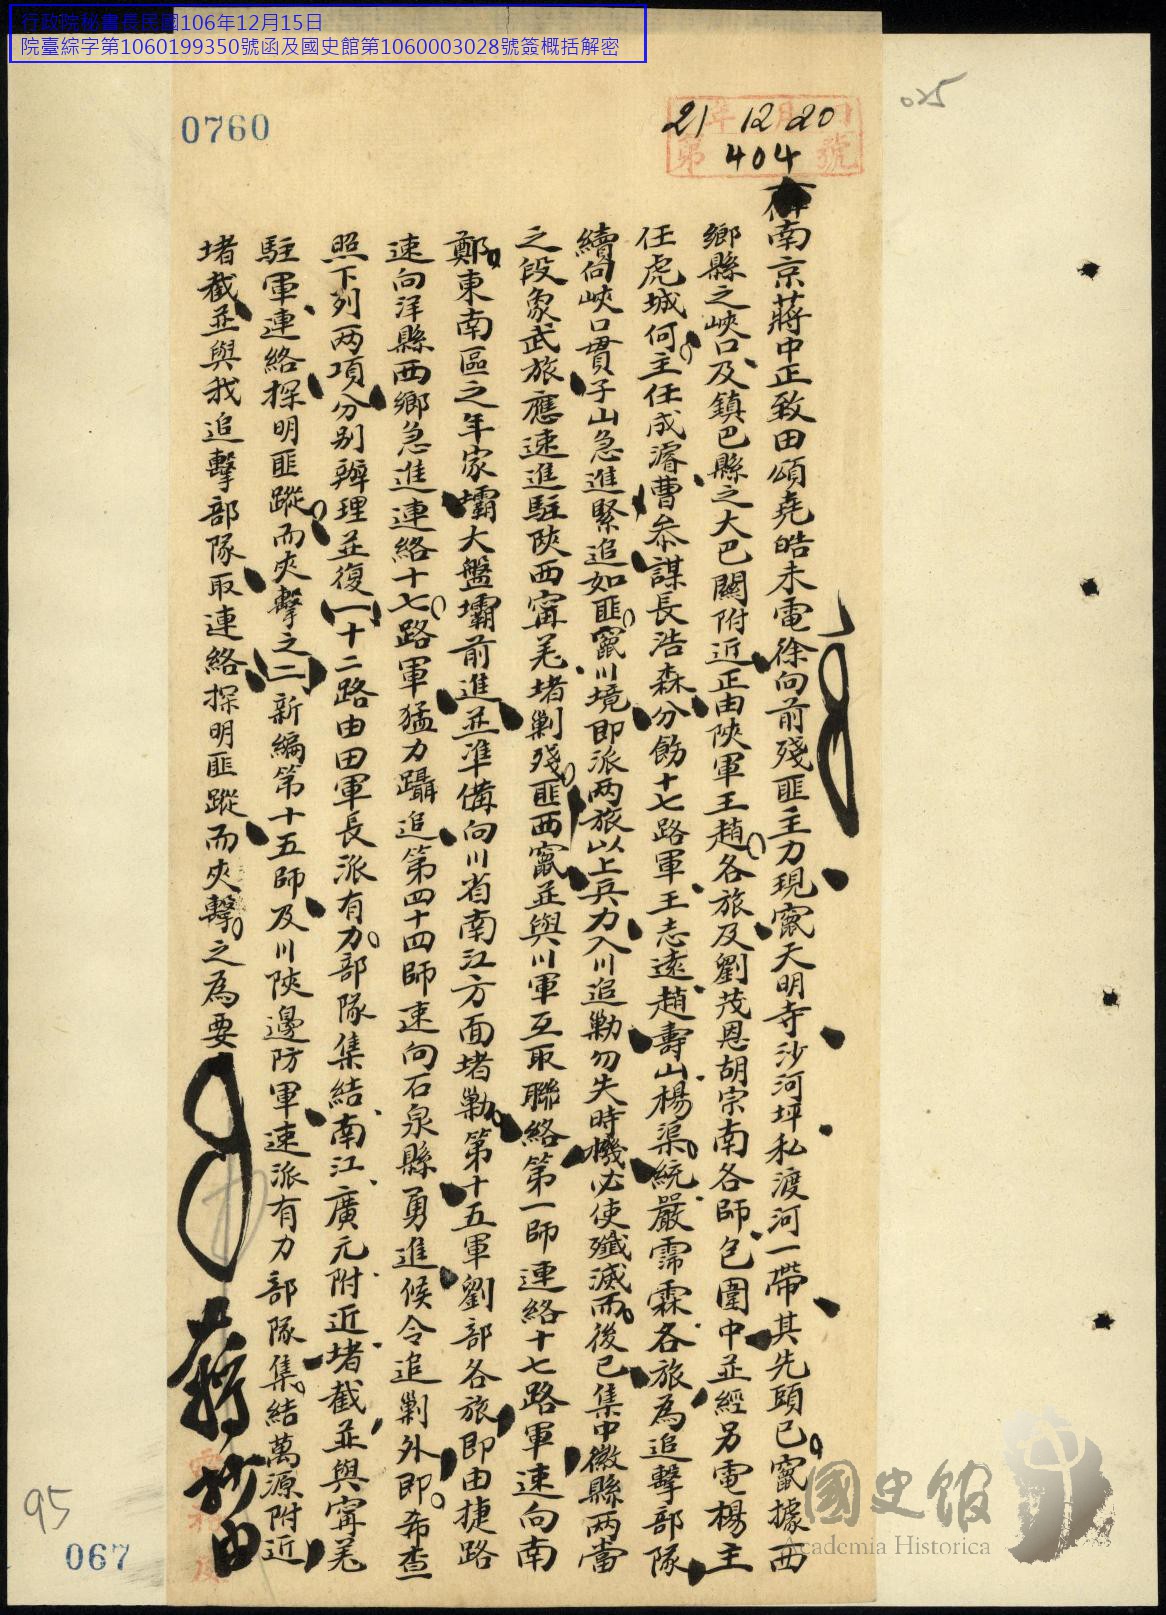 行政院秘書長民國106年12月15日
院臺綜字第1060199350號函及國史館第1060003028號簽概括解密
0760
025
21年12月20日
第404號
南京蔣中正致田頌堯皓未電徐向前殘匪主力現竄天明寺沙河坪私渡河一帶其先頭已竄據西
鄉縣之峽口及鎮巴縣之大巴關附近正由陝軍王趙各旅及劉茂恩胡宗南各師包圍中並經另電楊主
任虎城何主任成濬曹參謀長浩森分飭十七路軍王志遠趙壽山楊渠統嚴霈霖各旅為追擊部隊
續向峽口貫子山急進緊追如匪竄川境即派兩旅以上兵力入川追勦勿失時機必使殲滅而後已集中徽縣兩當
之段象武旅應速進駐陝西寧羌堵剿殘匪西竄並與川軍互取聯絡第一師連絡十七路軍速向南
鄭東南區之年家壩大盤壩前進並準備向川省南江方面堵勦第十五軍劉部各旅即由捷路
速向洋縣西鄉急進連絡十七路軍猛力躡追第四十四師速向石泉縣勇進候令追剿外即希查
照下列兩項分別辦理並復(一)十二路由田軍長派有力部隊集結南江廣元附近堵截並與寧羌
駐軍連絡探明匪蹤而夾擊之(二)新編第十五師及川陝邊防軍速派有力部隊集結萬源附近
堵截並與我追擊部隊取連絡探明匪蹤而夾擊之為要
95
067
國史館
Academia Historica